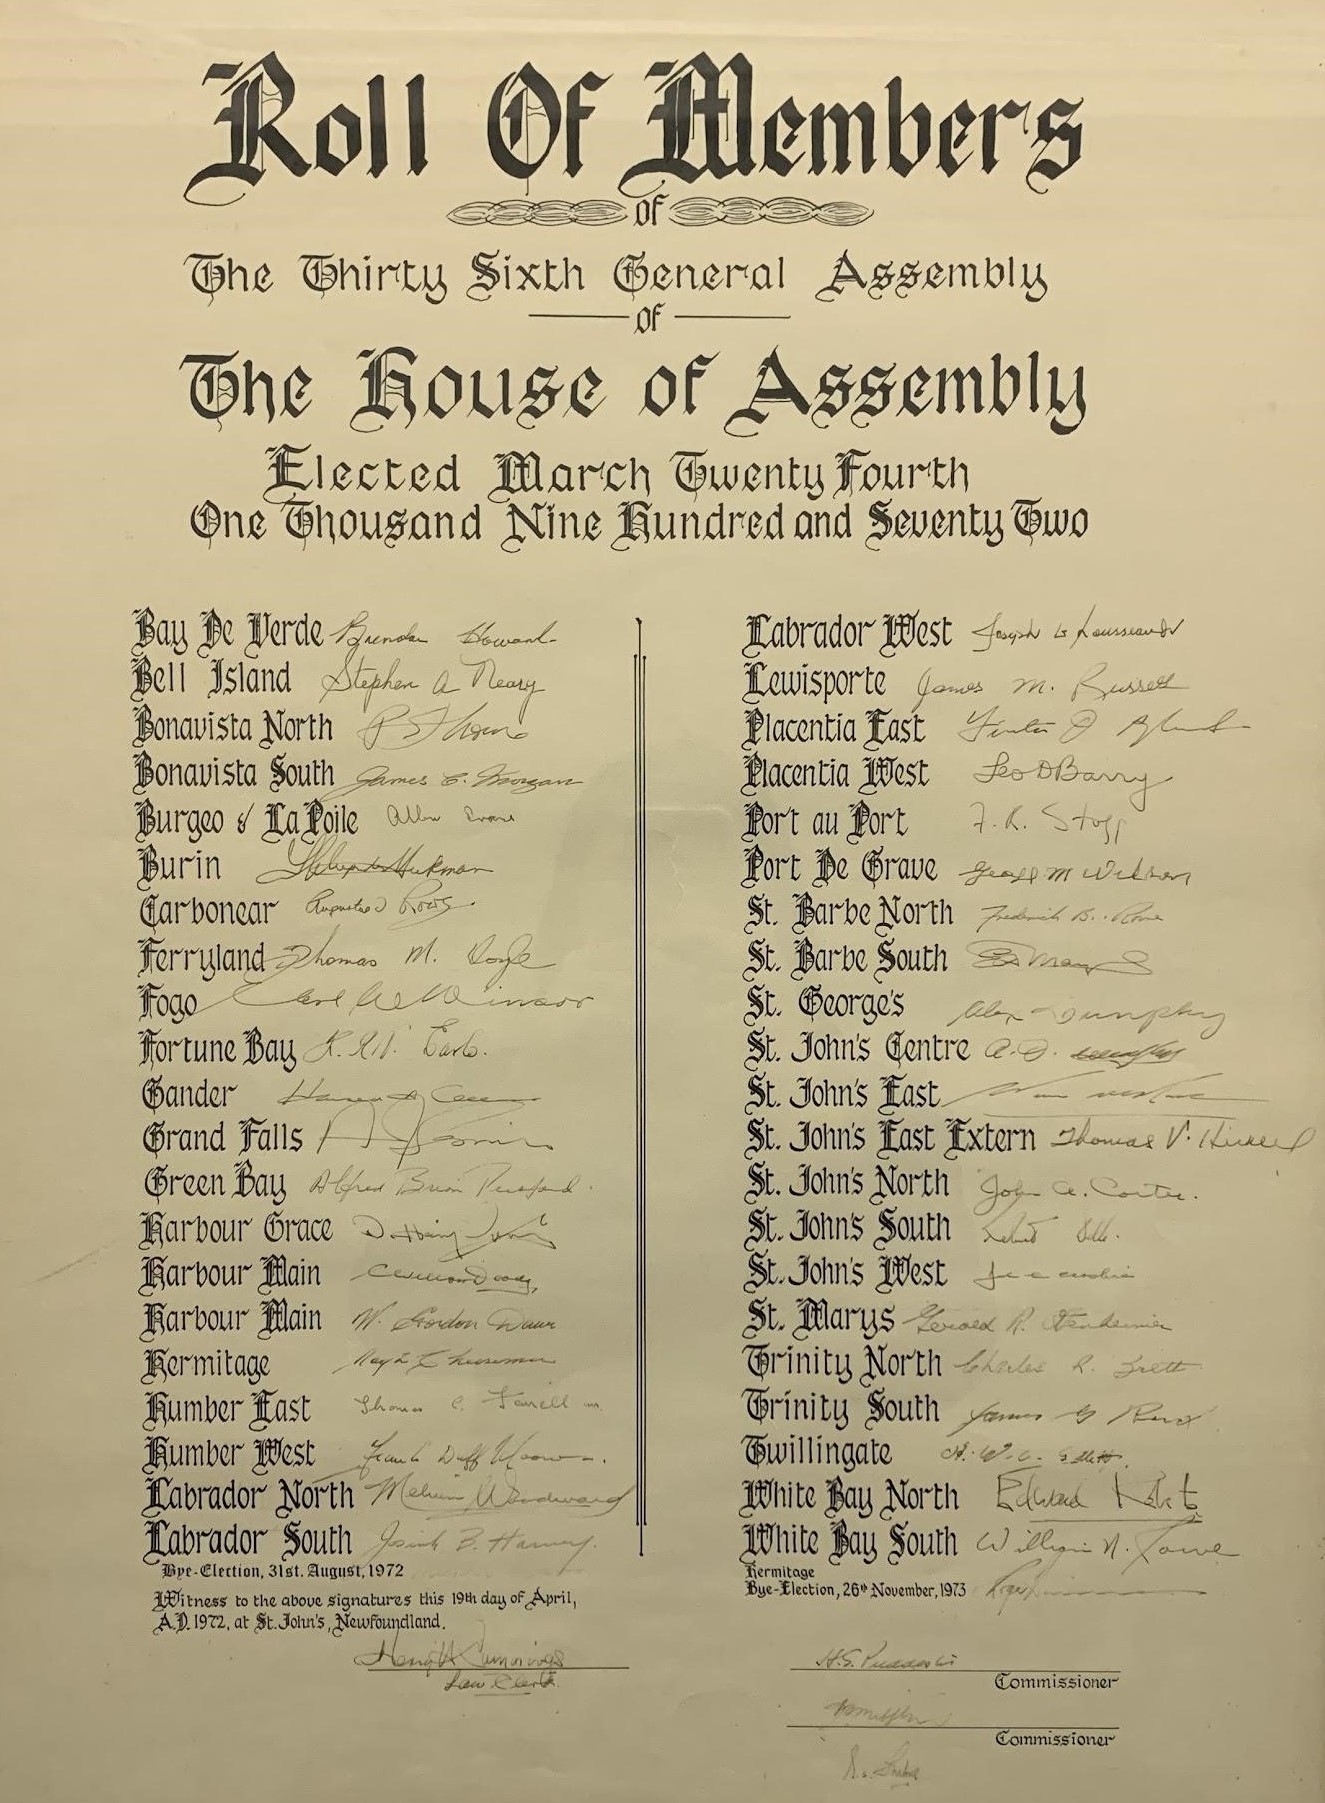 Roll Of Members
of
The Thirty Sixth General Assembly
of
The House of Assembly
Elected March Twenty Fourth
One Thousand Nine Hundred and Seventy Two
Bay De Verde Brendan Howard
Bell Island Stephen A Neary
Bonavista North
Bonavista South James C. Morgan
Burgeo & LaPoile Allan Evans
Burin
Carbonear Augustus Rowe
Ferryland Thomas M. Doyle
Fogo Earl W Winsor
Fortune Bay Earle
Gander
Grand Falls
Green Bay Alfred Brian Peckford
Harbour Grace
Harbour Main
Harbour Main W. Gordon Dawe
Hermitage
Humber East Thomas C. Farrell
Humber West Frank Duff Moores
Labrador North Melvin Woodward
Labrador South Josiah B. Harvey
Bye-Election, 31st. August, 1972
Witness to the above signatures this 19th day of April,
A.D. 1972, at St. John's, Newfoundland.
Law Clerk
Labrador West Joseph G Rousseau Jr
Lewisporte James M. Russell
Placentia East
Placentia West Leo D Barry
Port au Port F. R. Stagg
Port De Grave George M Wilson
St. Barbe North Frederick B. Rowe
St. Barbe South
St. George's Alex Dunphy
St. John's Centre
St. John's East
St. John's East Extern Thomas V. Hickey
St. John's North John A. Carter
St. John's South
St. John's West
St. Marys Gerald R. Ottenheimer
Trinity North Charles R. Brett
Trinity South James G Reid
Twillingate H. W. C. Gillett
White Bay North Edward Roberts
White Bay South William N. Rowe
Hermitage
Bye-Election, 26th November, 1973 Roger
H.S. Puddester
Commissioner
Commissioner